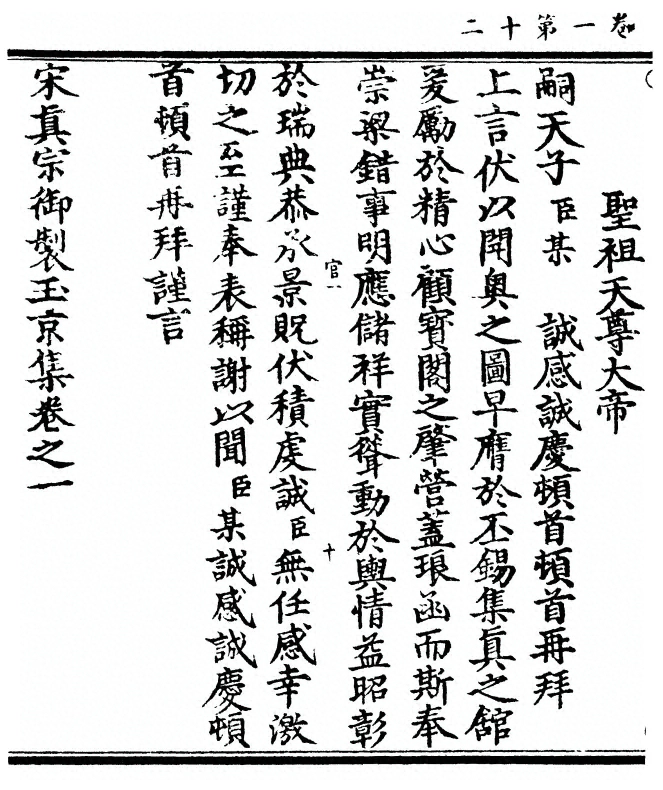 卷一第十二
聖祖天尊大帝
嗣天子臣某　誠感誠慶頓首頓首再拜
上言伏以閟奥之圖早膺於丕錫集真之舘
爰勵於精心顧寳閣之肇營蓋琅函而斯奉
崇梁錯事明應儲祥實聳動於輿情益昭彰
於瑞典恭承景貺伏積虔誠臣無任感幸激
切之至謹奉表稱謝以聞臣某誠感誠慶頓
首頓首再拜謹言
宋真宗御製玉京集卷之一
官一
十